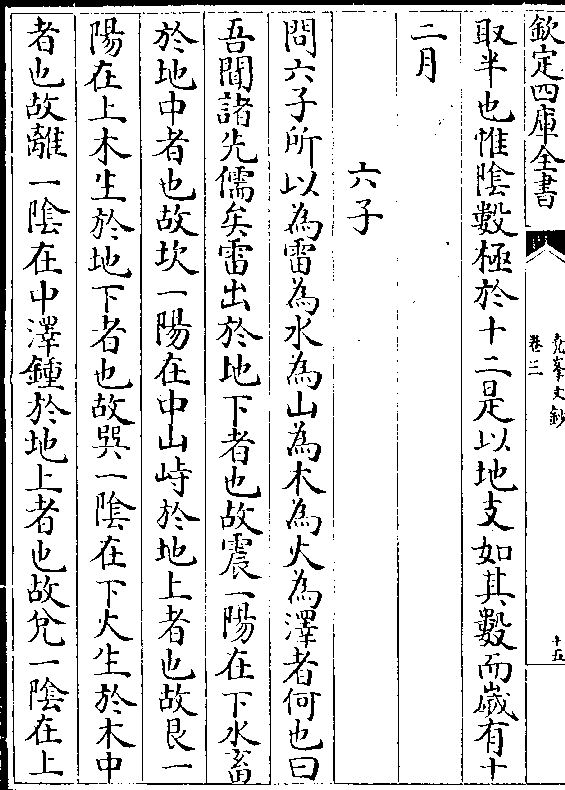 欽定四庫全書
堯峯文鈔
卷三
十五
取半也惟陰數極於十二是以地支如其數而歲有十
二月
六子
問六子所以為雷為水為山為木為火為澤者何也曰
吾聞諸先儒矣雷出於地下者也故震一陽在下水畜
於地中者也故坎一陽在中山峙於地上者也故艮一
陽在上木生於地下者也故巽一陰在下火生於木中
者也故離一陰在中澤鍾於地上者也故兌一陰在上